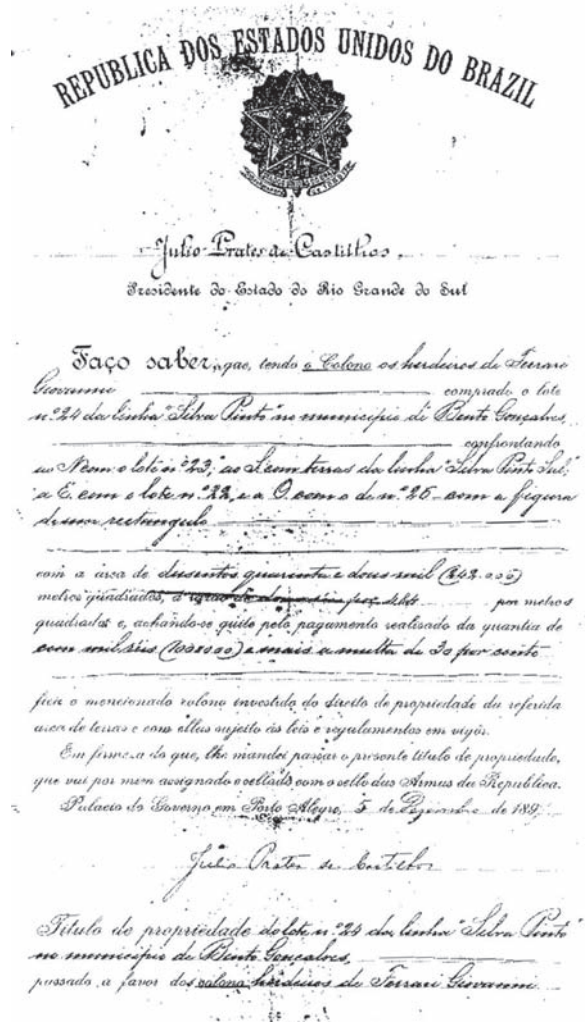 REPUBLICA DOS ESTADOS UNIDOS DO BRAZIL
Julio Prates de Castilhos,
Presidente do Estado do Rio Grande do Sul
Faço saber, que, tendo o Colono os herdeiros de Ferrari
Giovanni comprado o lote
nº 24 da linha "Silva Pinto" no municipio de Bento Gonçalves,
confrontando
ao N com o lote nº 23; ao S. com terras da linha "Silva Pinto Sul;
a E. com o lote n.º 22, e a O. com o de n.º 26 - com a figura
de um rectangulo
com a area de dusentos quarenta e dous mil (242.000)
metros quadrados, a por metros
quadrados e, achando-se quite pelo pagamento realisado da quantia de
cem mil réis (100$000) e mais a multa de 30 por cento
fica o mencionado colono investido do direito de propriedade da referida
area de terras e com ellas sujeito ás leis e regulamentos em vigôr.
Em firmeza do que, lhe mandei passar o presente titulo de propriedade,
que vai por mim assignado e sellado com o sello das Armas da Republica.
Palacio do Governo em Porto Alegre, 5 de Dezembro de 189
Julio Prates de Castilhos
Titulo de propriedade do lote n.º 24 da linha "Silva Pinto"
no municipio de Bento Gonçalves,
passado a favor dos colono herdeiros de Ferrari Giovanni